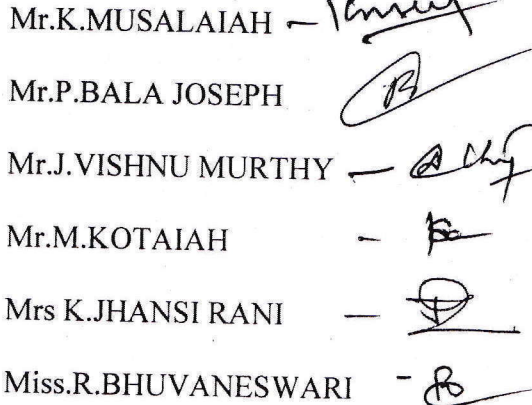 Mr.K.MUSALAIAH -
Mr.P.BALA JOSEPH
Mr.J.VISHNU MURTHY -
Mr.M.KOTAIAH -
Mrs K.JHANSI RANI -
Miss.R.BHUVANESWARI -